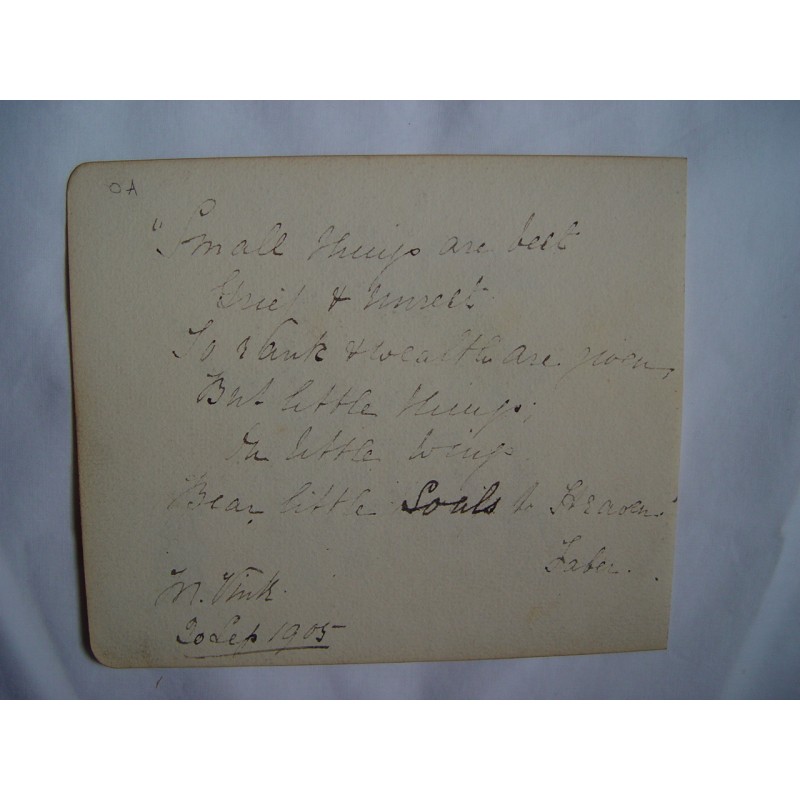 OA
"Small things are best
Grief & unrest
To rank & wealth are given,
But little things,
On little wings
Bear little Souls to Heaven."
Faber.
20 Sep 1905